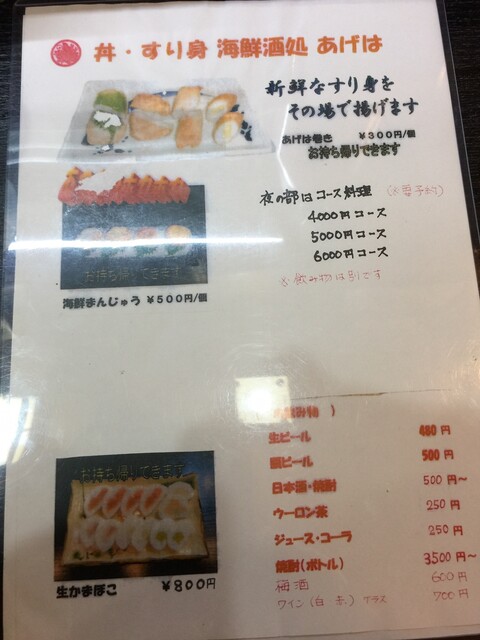 丼・すり身 海鮮酒処 あげは
新鮮なすり身を
その場で揚げます
あげは巻き ¥300円/個
お持ち帰りできます
夜の部はコース料理 (※要予約)
4000円コース
5000円コース
6000円コース
※飲み物は別です
お持ち帰りできます
海鮮まんじゅう ¥500円/個
飲み物 )
生ビール 480円
瓶ビール 500円
日本酒・焼酎 500円~
ウーロン茶 250円
ジュース・コーラ 250円
焼酎(ボトル) 3500円~
梅酒 600円
ワイン(白・赤)グラス 700円
お持ち帰りできます
生かまぼこ ¥800円